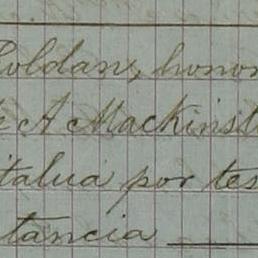 Roldan, honor
e A Mackinst
italua por tes
tancia